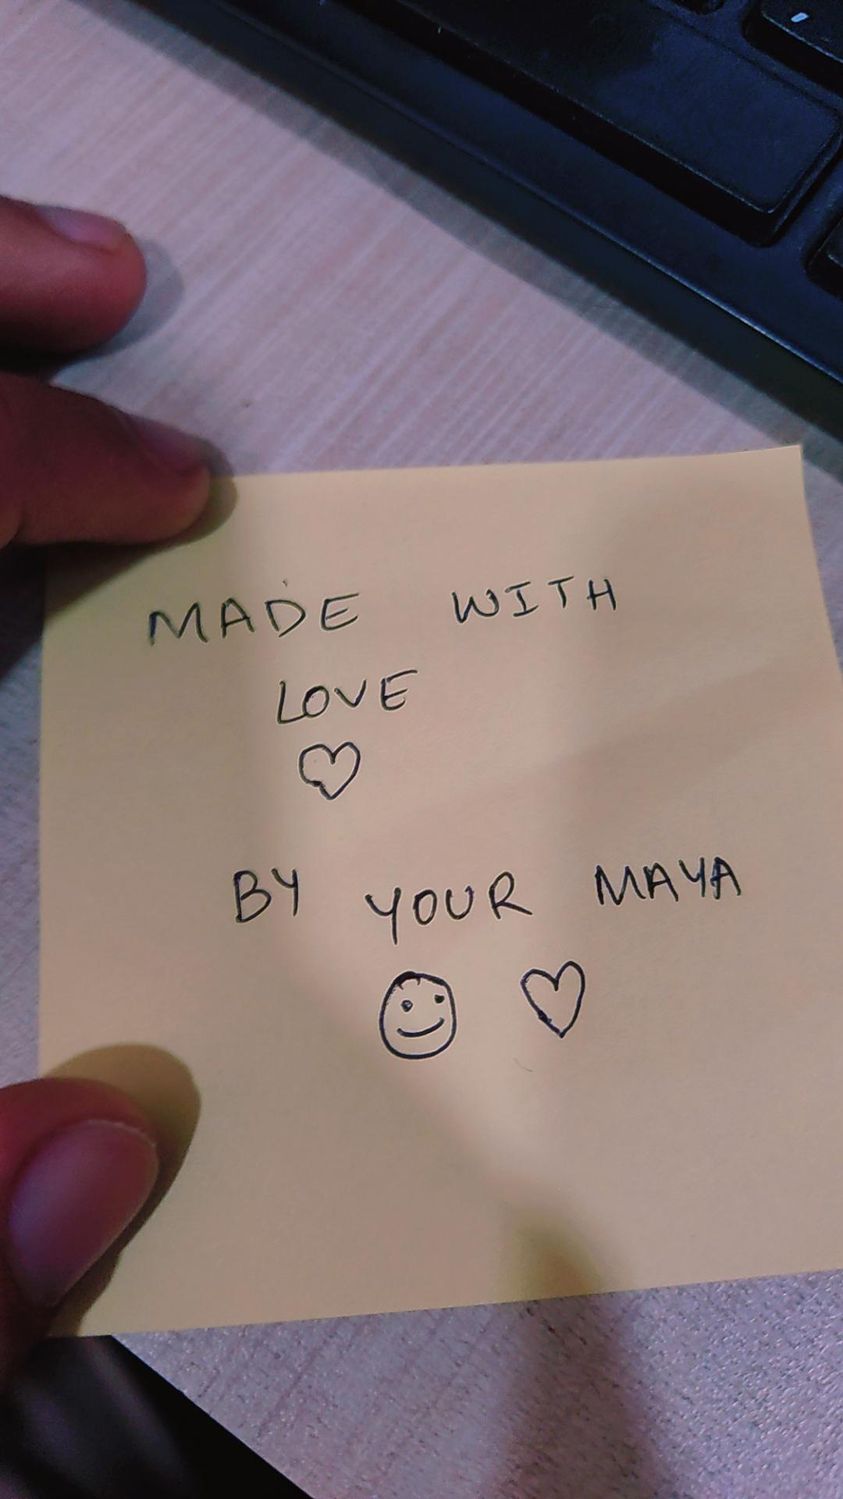 MADE WITH
LOVE
♡
BY YOUR MAYA
☺ ♡